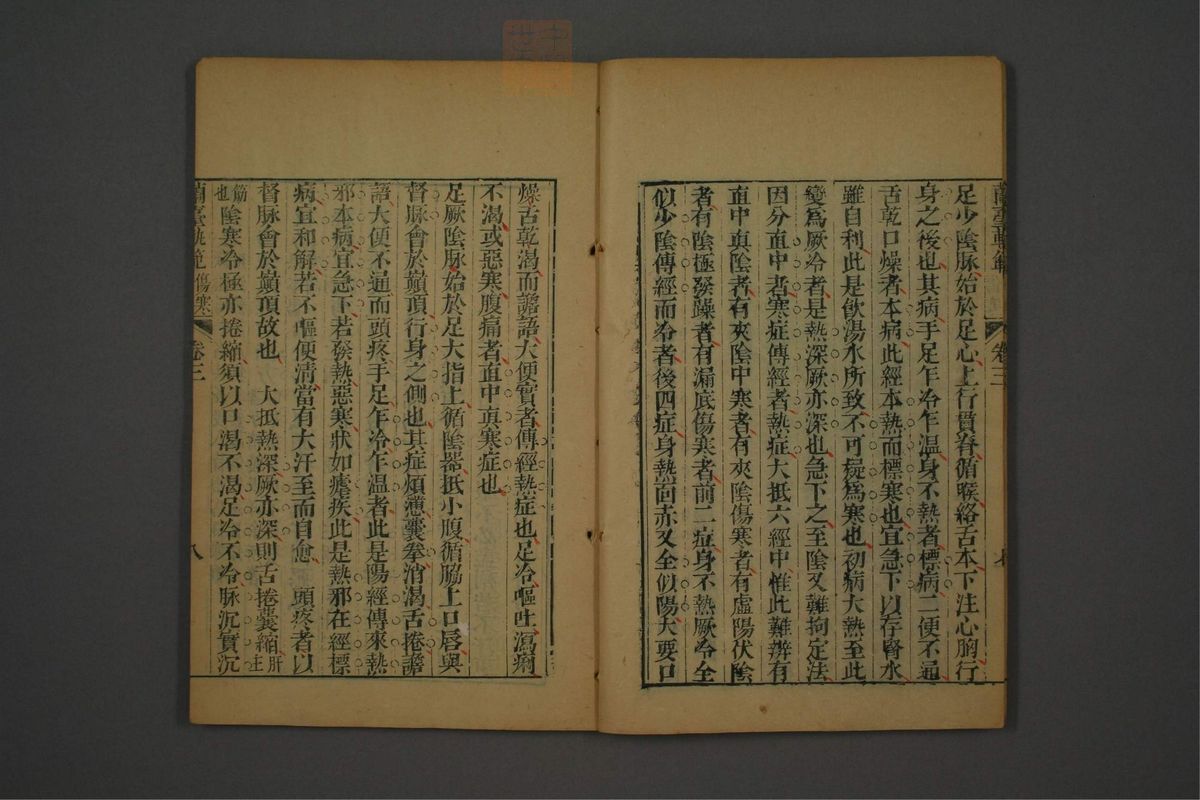 足少陰脉始於足心上行貫脊循喉絡舌本下注心胸行
身之後也其病手足乍冷乍温身不熱者標病二便不通
舌乾口燥者本病此經本熱而標寒也宜急下以存腎水
雖自利此是飲湯水所致不可疑爲寒也初病大熱至此
變爲厥冷者是熱深厥亦深也急下之至陰又難拘定法
因分直中者寒症傳經者熱症大抵六經中惟此難辨有
直中真陰者有夾陰中寒者有夾陰傷寒者有虚陽伏陰
者有陰極發躁者有漏底傷寒者前二症身不熱厥冷全
似少陰傳經而冷者後四症身熱面赤又全似陽大要口
卷三
燥舌乾渴而譫語大便實者傳經熱症也足冷嘔吐瀉痢
不渴或惡寒腹痛者直中真寒症也
足厥陰脉始於足大指上循陰器抵小腹循脇上口唇與
督脉會於巔頂行身之側也其症煩懣囊拳消渴舌捲譫
語大便不通而頭疼手足乍冷乍温者此是陽經傳來熱
邪本病宜急下若發熱惡寒狀如瘧疾此是熱邪在經標
病宜和解若不嘔便清當有大汗至而自愈 頭疼者以
督脉會於巔頂故也 大抵熱深厥亦深則舌捲囊縮肝主
筋也陰寒冷極亦捲縮須以口渴不渴足冷不冷脉沉實沉
蘭臺軌範 傷寒 卷三 八